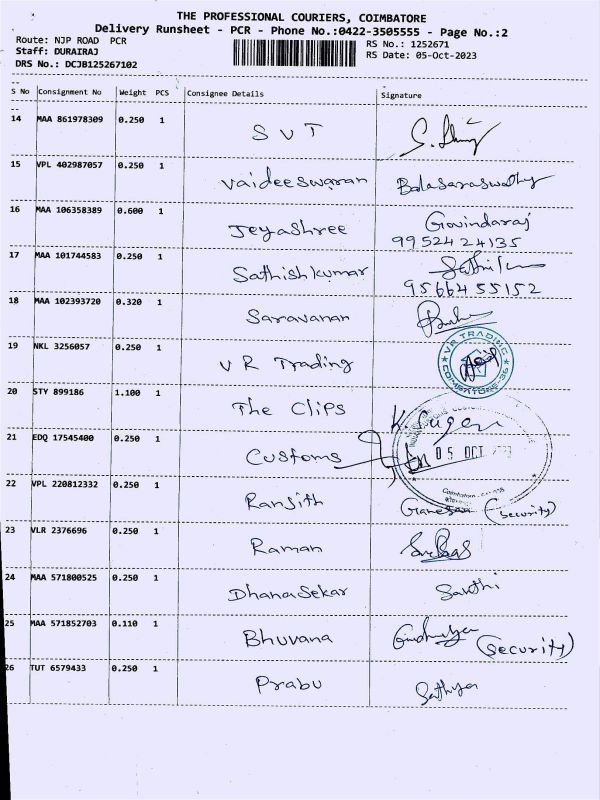 THE PROFESSIONAL COURIERS, COIMBATORE
Delivery Runsheet - PCR - Phone No.:0422-3505555 - Page No.:2
Route: NJP ROAD PCR
Staff: DURAIRAJ
DRS No.: DCJB125267102
RS No.: 1252671
RS Date: 05-Oct-2023
S No Consignment No Weight PCS Consignee Details Signature
14 MAA 861978309 0.250 1 SVT
15 VPL 402987057 0.250 1 Vaideeswaran Balasaraswathy
16 MAA 106358389 0.600 1 Jeyashree Govindaraj
99524 24135
17 MAA 101744583 0.250 1 Sathishkumar
95664 55152
18 MAA 102393720 0.320 1 Saravanan
19 NKL 3256057 0.250 1 V R Trading VR TRADING
20 STY 899186 1.100 1 The Clips
21 EDQ 17545400 0.250 1 Customs 05 OCT
22 VPL 220812332 0.250 1 Ranjith Ganesan (security)
23 VLR 2376696 0.250 1 Raman
24 MAA 571800525 0.250 1 Dhanasekar Santhi
25 MAA 571852703 0.110 1 Bhuvana (security)
26 TUT 6579433 0.250 1 Prabu Sathya